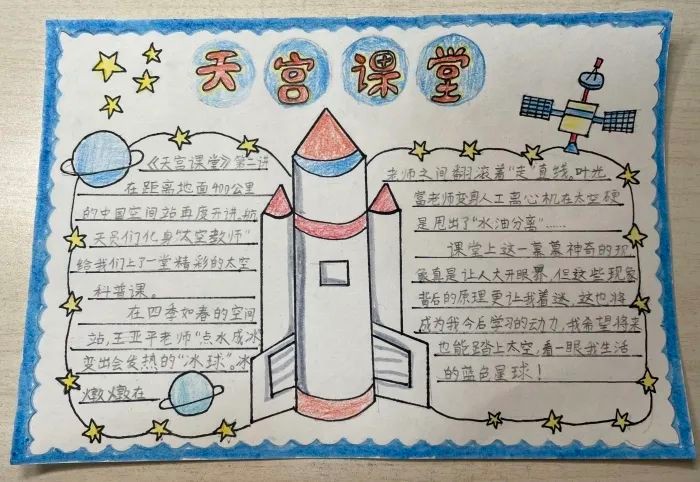 天宫课堂
《天宫课堂》第二讲
在距离地面400公里
的中国空间站再度开讲,航
天员们化身“太空教师”
给我们上了一堂精彩的太空
科普课。
在四季如春的空间
站,王亚平老师“点水成冰”
变出会发热的“冰球”。冰
墩墩在
老师之间翻滚着“走”直线。叶光
富老师变身人工离心机在太空硬
是甩出了“水油分离”……
课堂上这一幕幕神奇的现
象真是让人大开眼界,但这些现象
背后的原理更让我着迷,这也将
成为我今后学习的动力,我希望将来
也能踏上太空,看一眼我生活
的蓝色星球!